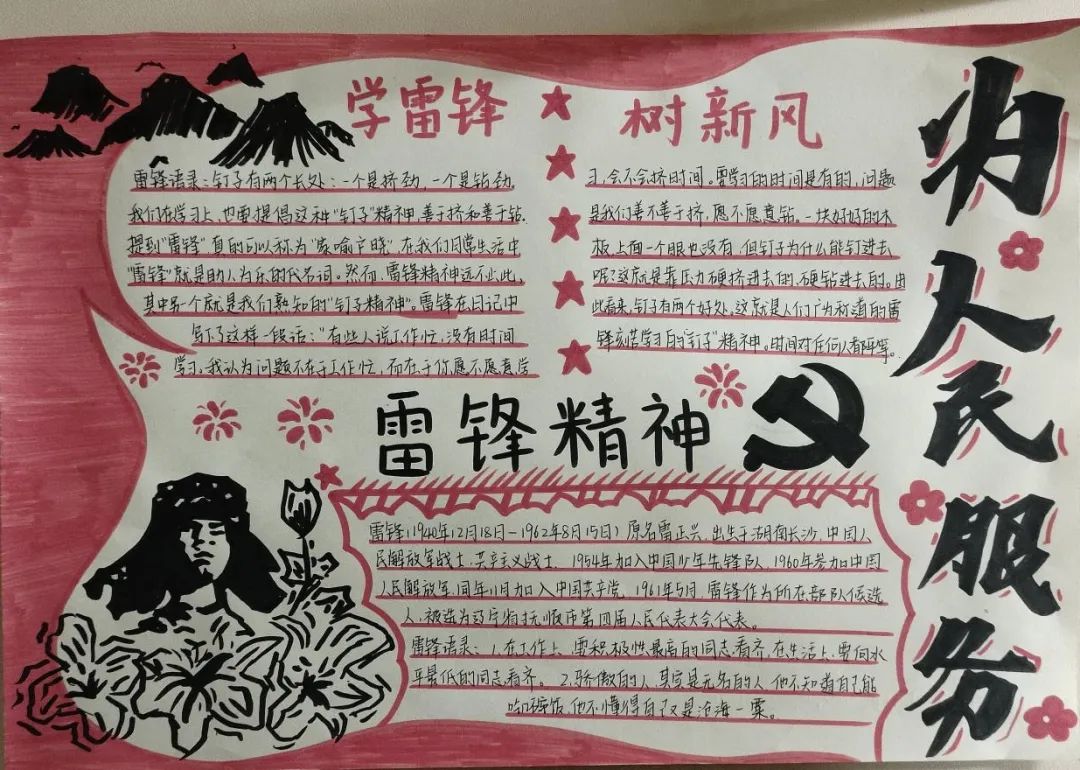 学雷锋
树新风
雷锋语录：钉子有两个长处：一个是挤劲，一个是钻劲。
我们在学习上，也要提倡这种"钉子"精神，善于挤和善于钻。
提到"雷锋"真的可以称为"家喻户晓"，在我们日常生活中
"雷锋"就是助人为乐的代名词。然而，雷锋精神远不止此，
其中另一个就是我们熟知的"钉子精神"。雷锋在日记中
写了这样一段话："有些人说工作忙，没有时间
学习，我认为问题不在于工作忙，而在于你愿不愿意学
习，会不会挤时间。要学习的时间是有的，问题
是我们善不善于挤，愿不愿意钻。一块好好的木
板，上面一个眼也没有，但钉子为什么能钉进去
呢？这就是靠压力硬挤进去的，硬钻进去的。由
此看来，钉子有两个好处，这就是人们广为称道的雷
锋刻苦学习的"钉子"精神。时间对任何人都平等。
雷锋精神
雷锋（1940年12月18日—1962年8月15日）原名雷正兴，出生于湖南长沙，中国人
民解放军战士，共产主义战士，1954年加入中国少年先锋队，1960年参加中国
人民解放军，同年11月加入中国共产党。1961年5月，雷锋作为所在部队候选
人，被选为辽宁省抚顺市第四届人民代表大会代表。
雷锋语录：1.在工作上，要向积极性最高的同志看齐，在生活上，要向水
平最低的同志看齐。2.骄傲的人，其实是无知的人，他不知道自己能
吃几碗饭，他不懂得自己只是沧海一粟。
为人民服务